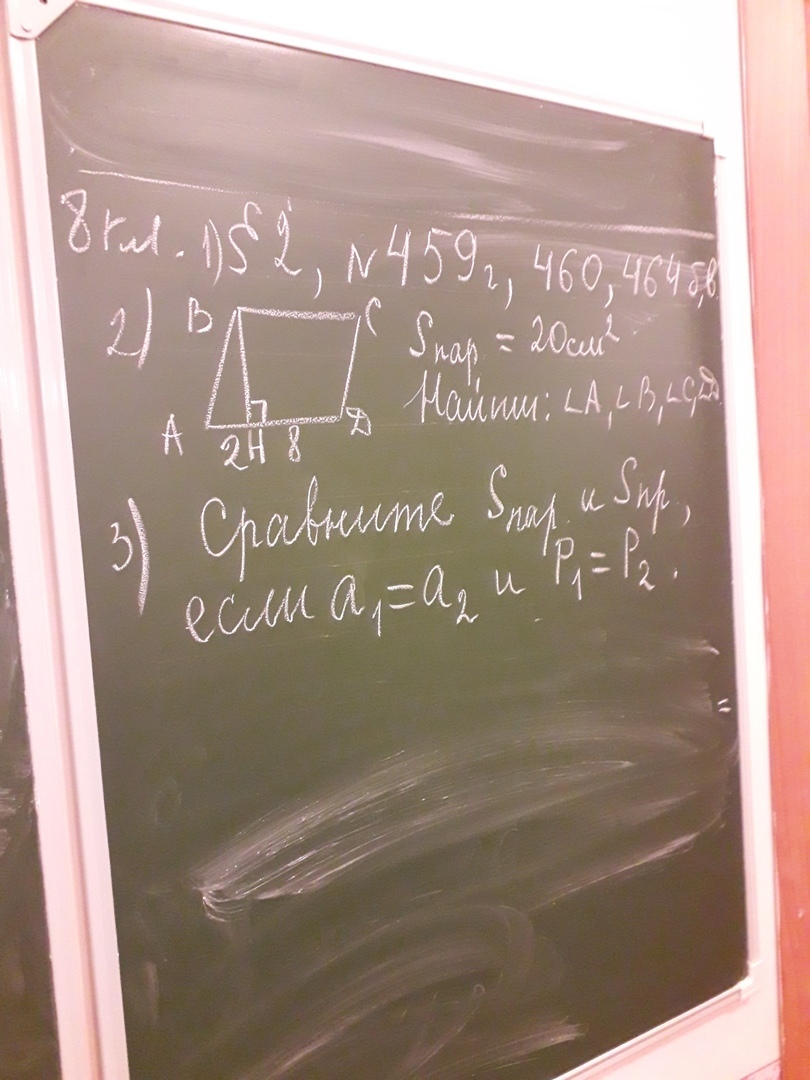 8 кл. 1) § 2, № 459г, 460, 464 б,в
2) B C Sпар = 20см²
Найти: ∠A, ∠B, ∠C, ∠D.
A 2 H 8 D
3) Сравните Sпар и Sпр,
если a₁=a₂ и P₁=P₂.
=